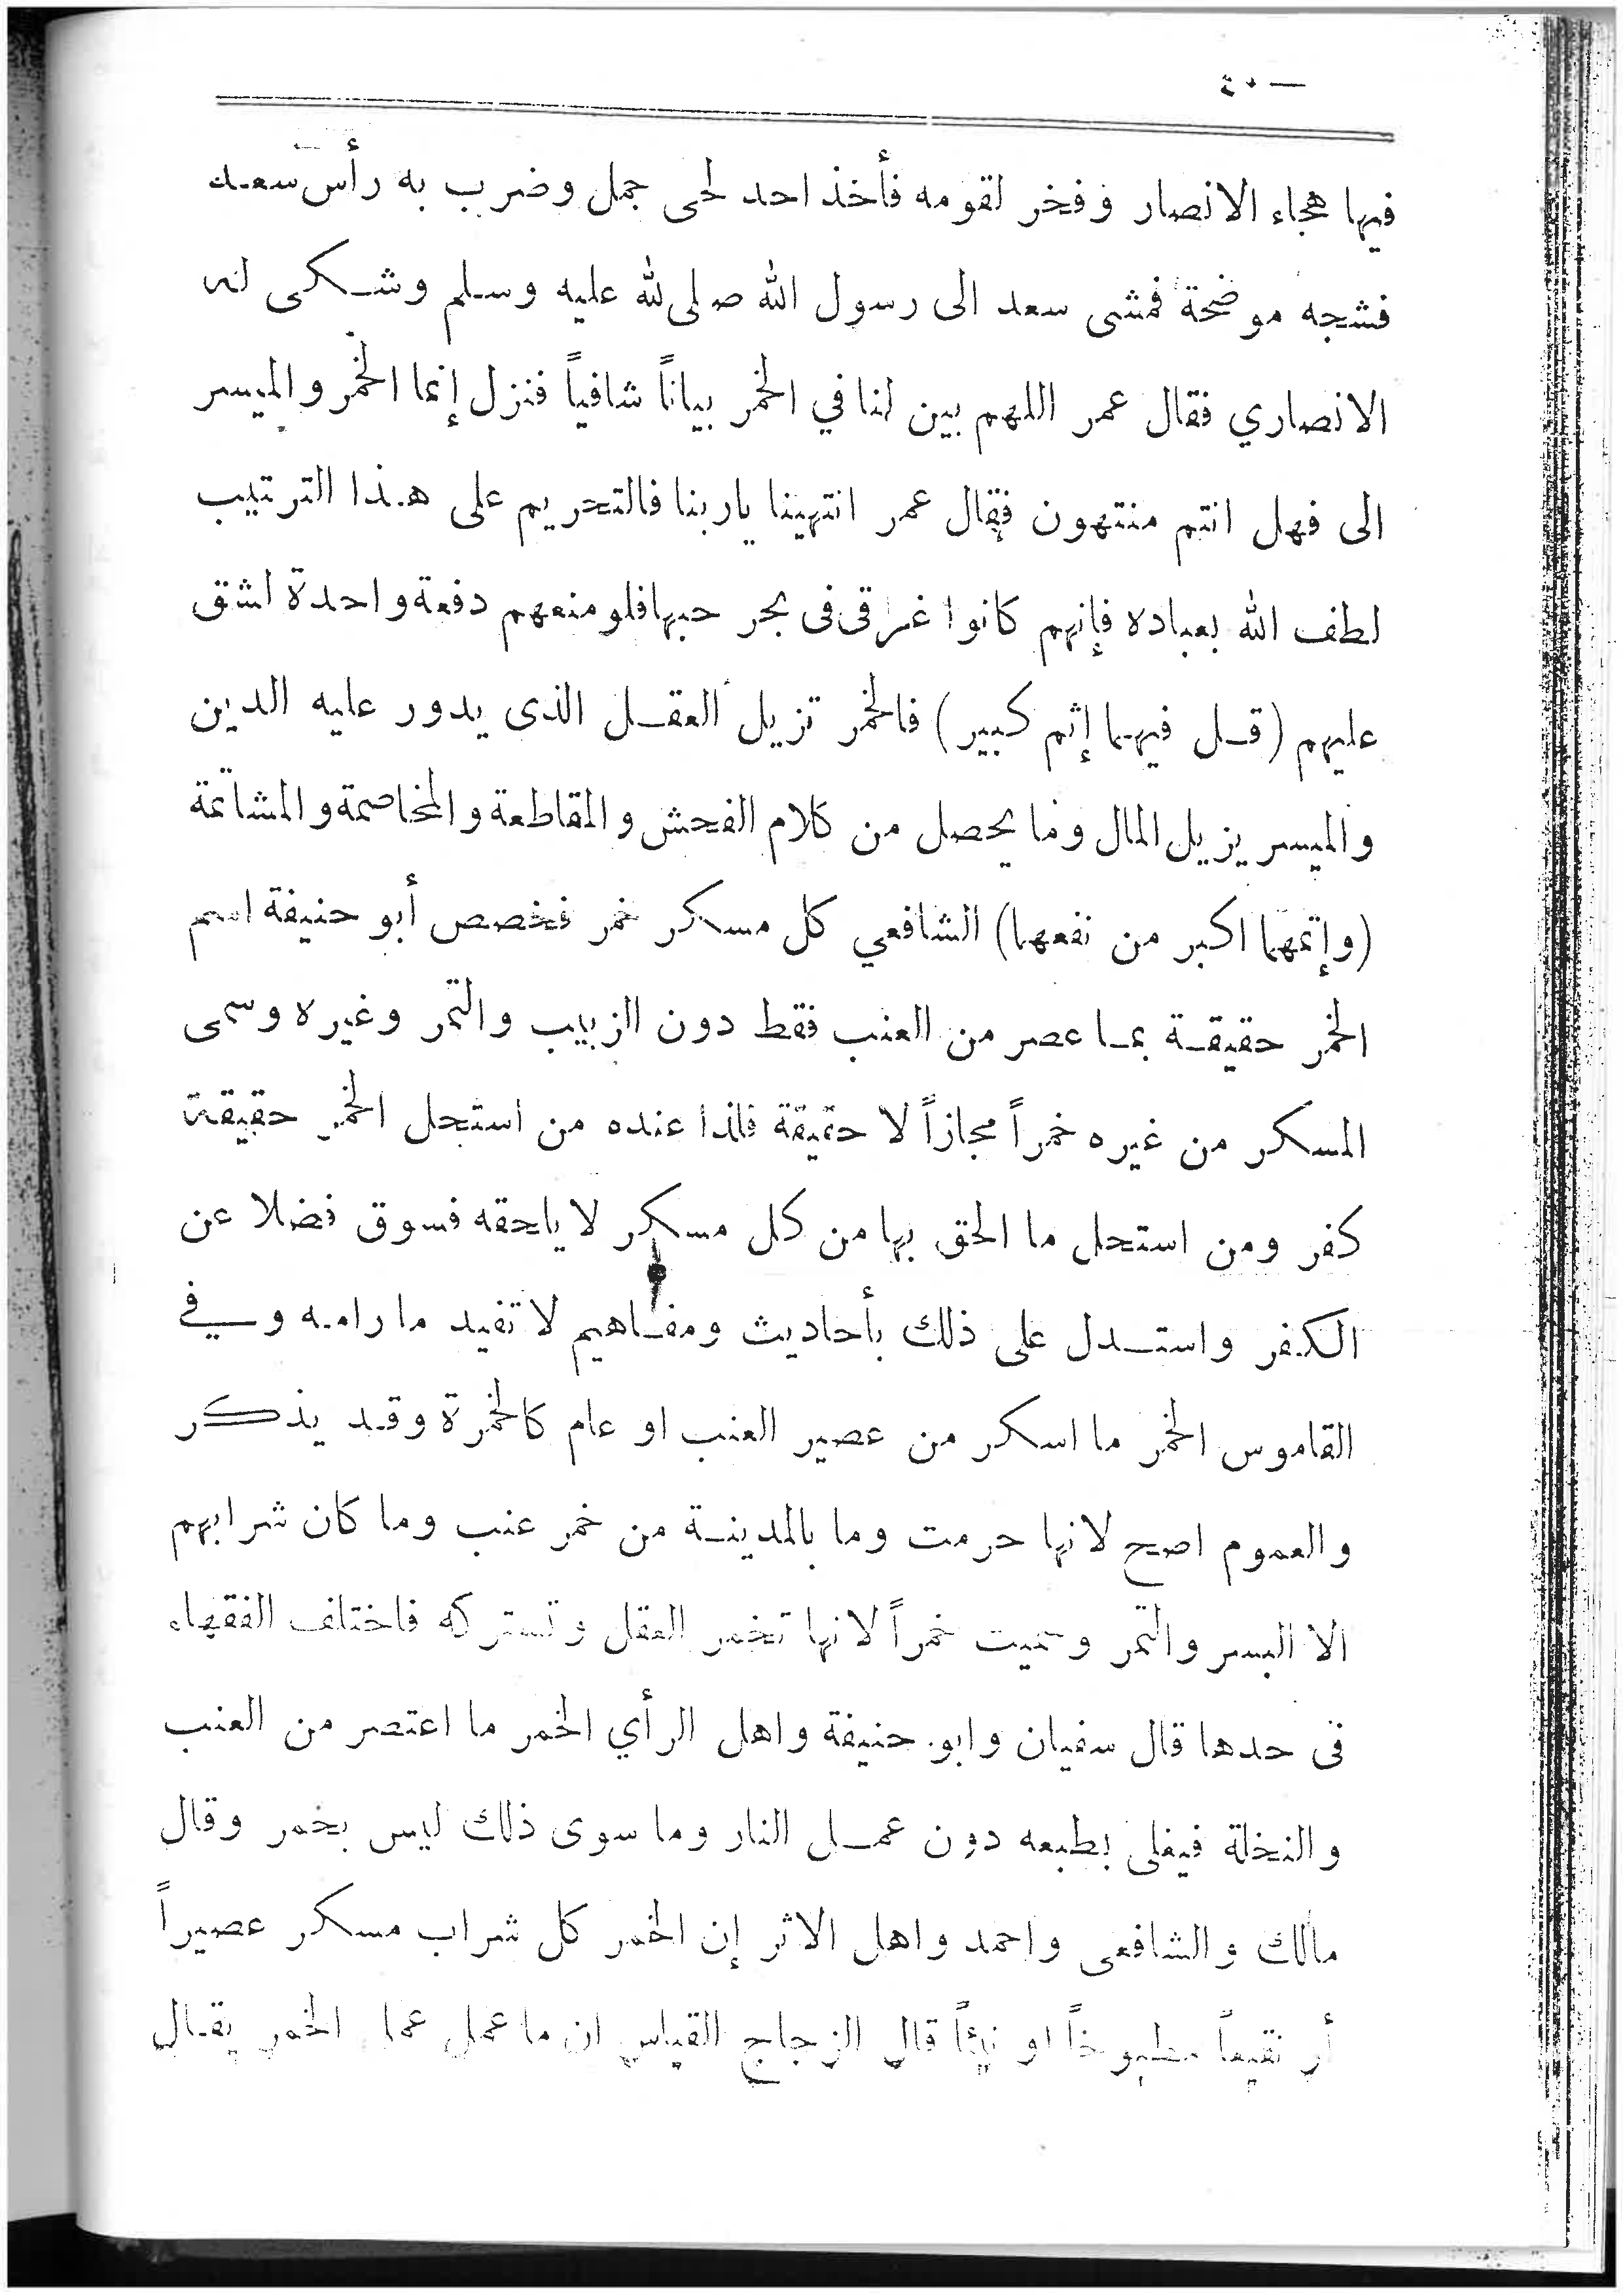 — ٤٠
فيها هجاء الانصار وفخر لقومه فأخذ احد لحى جمل وضرب به رأس سعد
فشجه موضحة فمشى سعد الى رسول الله صلى لله عليه وسلم وشكى له
الانصاري فقال عمر اللهم بين لنا في الخمر بياناً شافياً فنزل إنما الخمر والميسر
الى فهل انتم منتهون فقال عمر انتهينا ياربنا فالتحريم على هذا الترتيب
لطف الله بعباده فإنهم كانوا غراقى فى بحر حبها فلو منعهم دفعة واحدة لشق
عليهم (قل فيهما إثم كبير) فالخمر تزيل العقل الذى يدور عليه الدين
والميسر يزيل المال وما يحصل من كلام الفحش والمقاطعة والمخاصمة والمشاتمة
(وإثمهما اكبر من نفعهما) الشافعي كل مسكر خمر فخصص أبو حنيفة اسم
الخمر حقيقة بما عصر من العنب فقط دون الزبيب والتمر وغيره وسمى
المسكر من غيره خمراً مجازاً لا حقيقة فاذا عنده من استحل الخمر حقيقة
كفر ومن استحل ما الحق بها من كل مسكر لا يلحقه فسوق فضلا عن
الكفر واستدل على ذلك بأحاديث ومفاهيم لا تفيد ما رامه وفي
القاموس الخمر ما اسكر من عصير العنب او عام كالخمرة وقد يذكر
والعموم اصح لانها حرمت وما بالمدينة من خمر عنب وما كان شرابهم
الا البسر والتمر وسميت خمراً لانها تخمر العقل وتستر كه فاختلف الفقهاء
فى حدها قال سفيان وابو حنيفة واهل الرأي الخمر ما اعتصر من العنب
والنخلة فيغلى بطبعه دون عمل النار وما سوى ذلك ليس بخمر وقال
مالك والشافعى واحمد واهل الاثر إن الخمر كل شراب مسكر عصيراً
أو نقيعاً مطبوخاً او نيئاً قال الزجاج القياس ان ما عمل عمل الخمر يقال